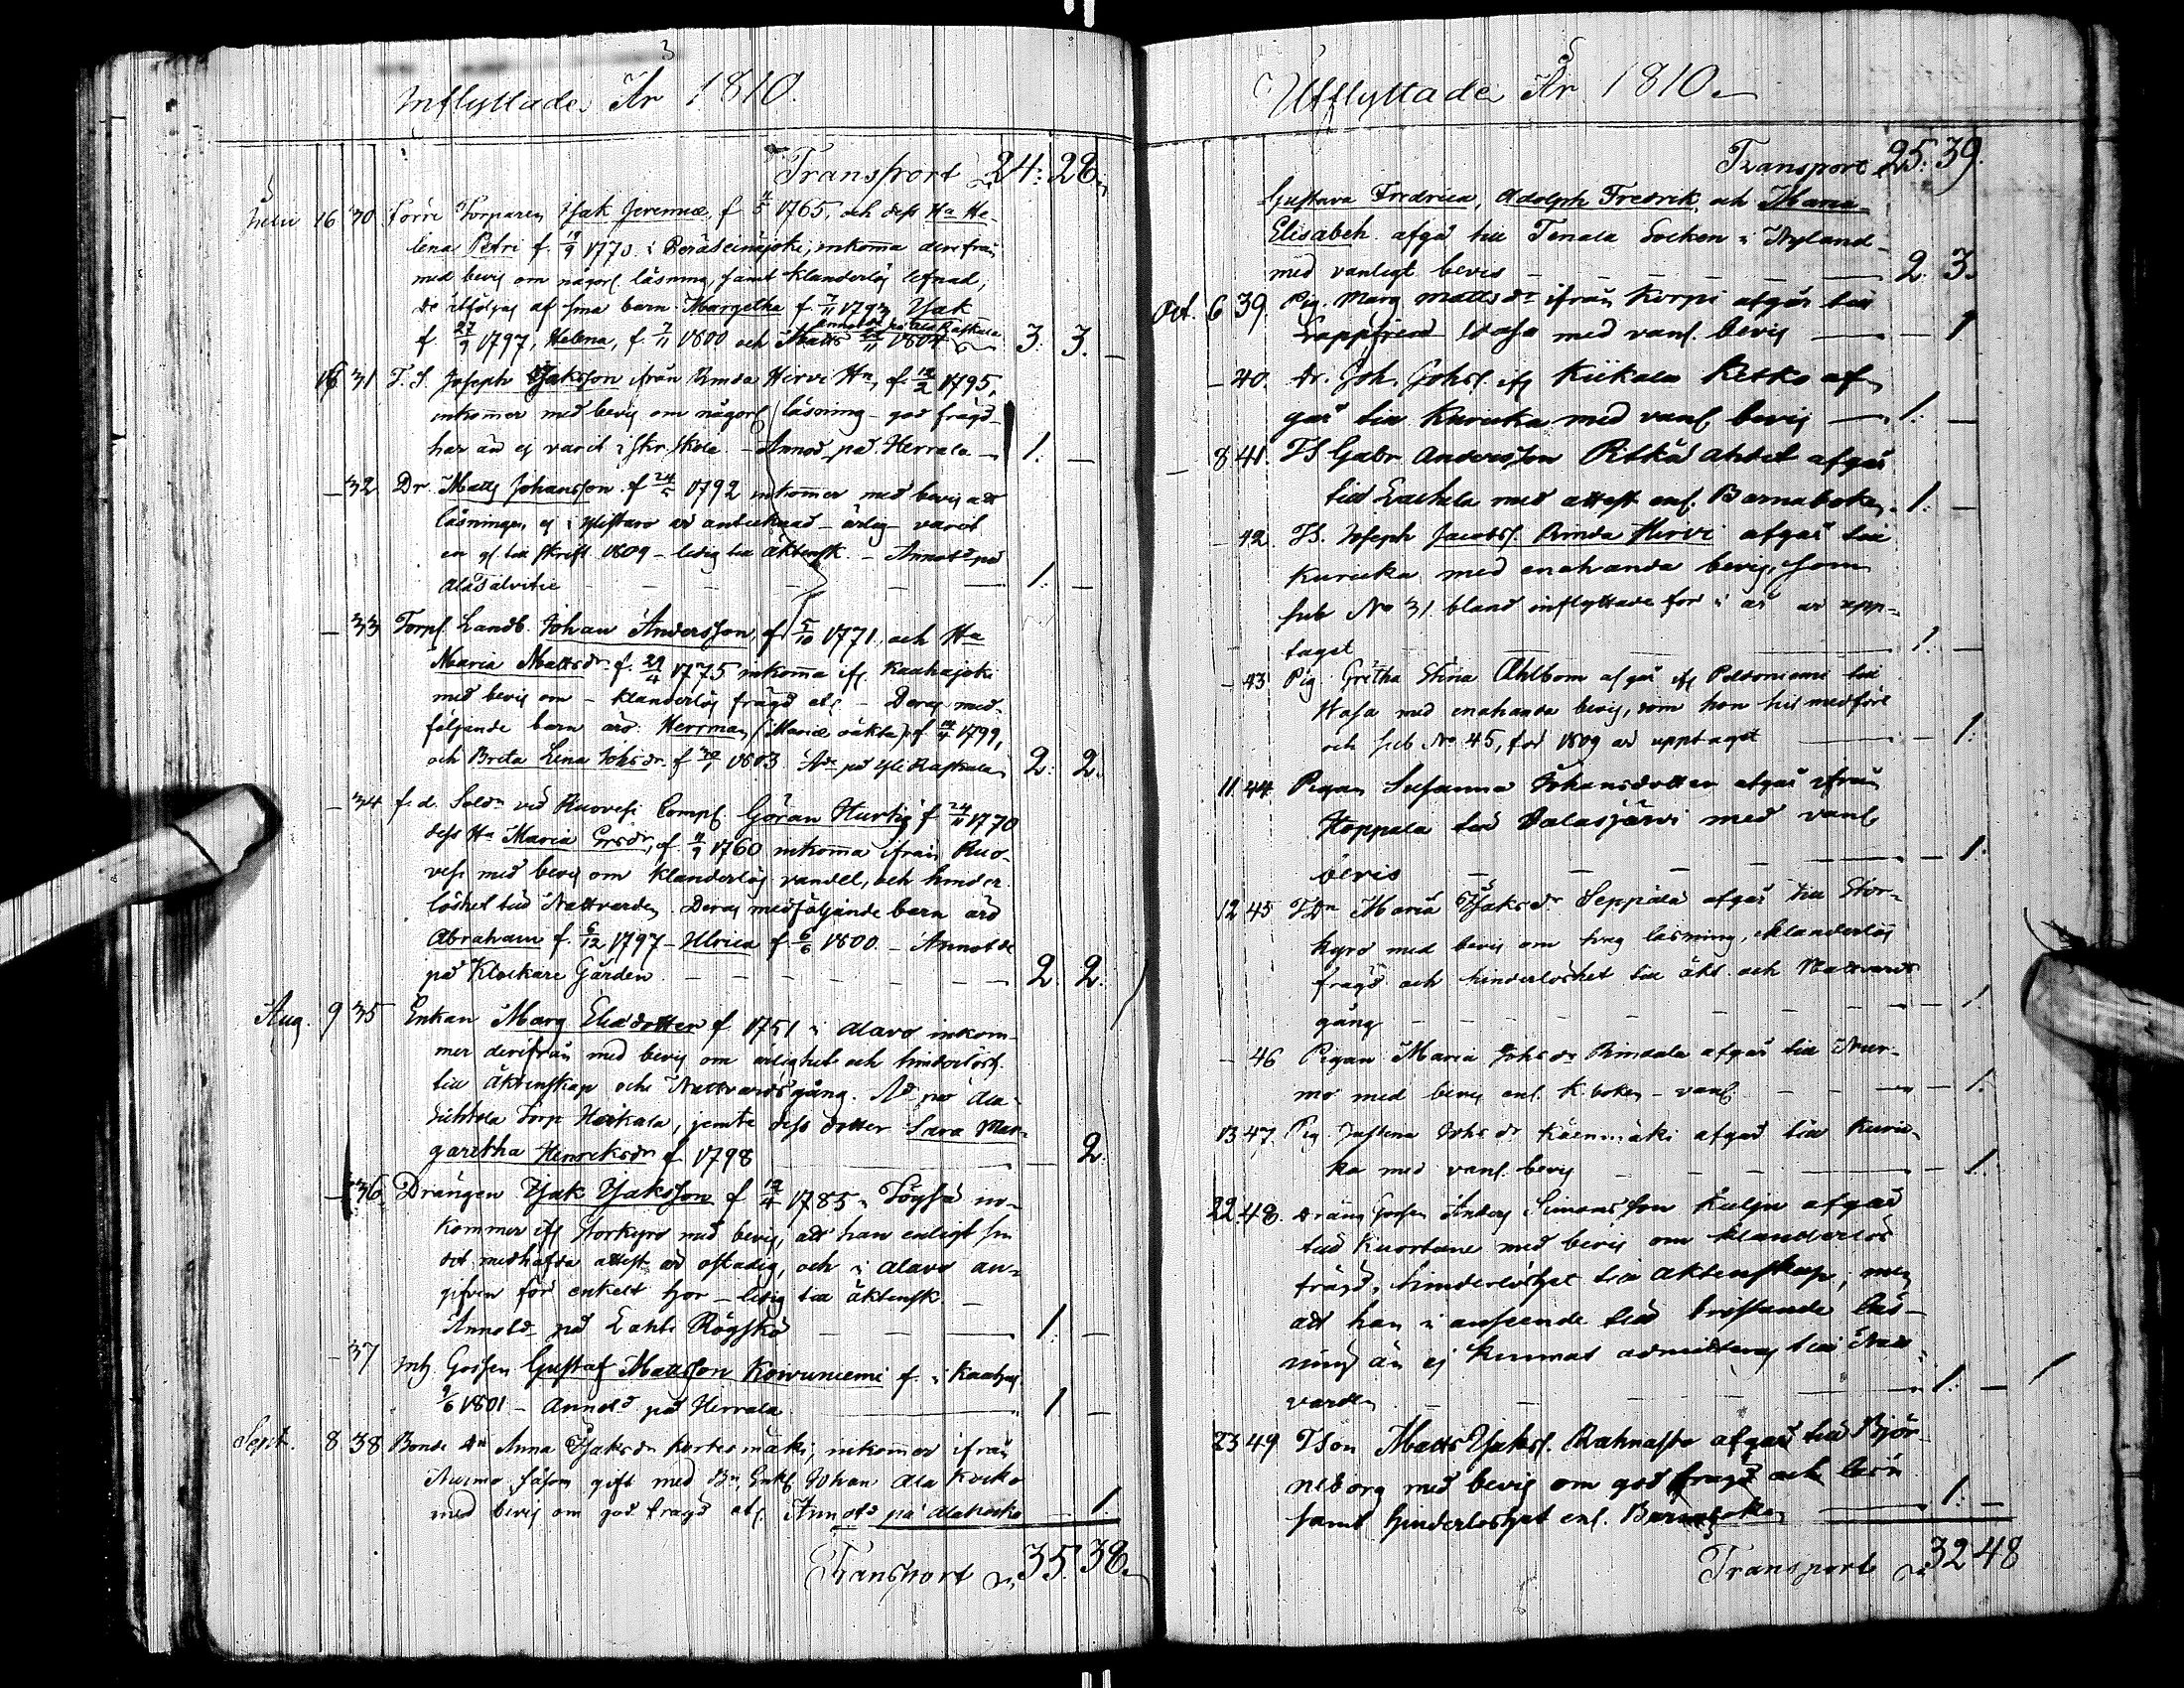 Inflyttade År 1810.
Transport 24: 28.
16 30 Förre Torparen Isak Jeremiæ, f 1765, och dess Ha He-
lena Petri f. 19/9 1770. i Peräseinäjoki, inkomma derifrån
med bevis om någorl läsning, samt klanderlös lefnad,
de åtföljas af sina barn Margetha f. 7/11 1793 Isak
f 27/9 1797, Helena, f. 7/11 1800 och Matts 1804 3. 3.
16 31 T. S. Joseph Isaksson ifrån Rinda Hirvi Hn, f. 19/2 1795,
inkommer med bevis om någorl läsning - god frägd
har än ej varit i skr. skola. - Annod på Herrala - 1. -
- 32 Dr. Matts Johansson f 24/5 1792 inkommer med bevis att
läsningen ej i Ylistaro är antecknad - ärlig - varit
en g. till skrift 1809 - ledig till äktensk. - Annotd på
Alasalvitie - - 1. -
- 33 Torpf. Landb. Johan Andersson, f 5/10 1771, och Ha
Maria Mattsdr f. 29/4 1775 inkomma ifr. Kauhajoki
med bevis om - klanderlös frägd etc - Deras med-
följande barn äro: Herrman, (Mariæ oäkta) f 14/4 1799,
och Breta Lena Johsdr f 30/7 1803. på Yli Raskala 2. 2.
- 34 f. d. Soldn vid Ruovesi Comp. Göran Hurtig f 24/11 1770
dess Ha Maria Ersdr, f. 1760 inkomma ifrån Ruo-
vesi med bevis om klanderlös vandel, och hinder
löshet till Nattvarden. Deras medföljande barn äro
Abraham f. 6/12 1797 - Ulrica f 6/6 1800. - Annotde
på Klockare Gården - - - 2. 2.
Aug. 9 35 Enkan Marg Eliædotter f 1751 i Alavo inkom-
mer derifrån med bevis om ärlighet och hinderlösh.
till äktenskap och Nattvardsgång. på Ala
Torp Heikala, jemte dess dotter Sara Mar-
garetha Henriksdr f 1798 - 2.
- 36 Drängen Isak Isaksson f 12/4 1785 i Töysä in-
kommer ifr Storkyro med bevis, att han enligt sin
dit medhafda attest är ostadig, och i Alavo an-
gifven för enkelt hor - ledig till äktensk. -
Annotd på Lahti Rögskö - - 1. -
- 37 Inh. Gossen Gustaf Mattsson Koivuniemi f. i Kauhaj.
9/6 1801 - Annotd på Herrala 1 -
Sept. 8 38 Bonde Dn Anna Isaksdr Kortesmäki, inkommer ifrån
Nurmo såsom gift med Bn, Enkl Johan Ala Kosko
med bevis om god frägd etc. Annotd på Alakosko 1.
Transport 35. 38.
Utflyttade År 1810.
Transport 25. 39.
Gustava Fredrica, Adolph Fredrik och Maria
Elisabeh afgå till Tenala Socken i Nyland
med vanligt bevis - - - 2. 3.
Oct. 6 39. Pig. Marg Mattsdr ifrån Korpi afgår till
Wasa med vanl. bevis - - 1
- 40. Dr. Joh. Johss. ifr Kiikala Ketko af
går till Kuricka med vanl bevis - 1. -
- 8 41. TS Gabr Andersson Pitkä Ahdet afgår
till Laihela med attest enl. Barnaboken. 1. -
- 42 TS. Joseph Jacobss. Rinda Hirvi afgår till
Kuricka med enahanda bevis, som
sub No 31. bland inflyttade för i år är upp-
taget - - 1. -
- 43 Pig. Gretha Stina Ahlbom afgår ifr Peltoniemi till
Wasa med enahanda bevis, som hon hit medförl
och sub No 45, för 1809 är upptaget - - 1.
11 44 Pigan Susanna Johansdotter afgår ifrån
Hoppala till Jalasjärvi med vanl
bevis - - - 1.
12 45 TDn Maria Isaksdr Seppälä afgår till Stor-
kyro med bevis om läsning, klanderlös
frägd och hinderlöshet till äkt. och Nattvards
gång - - - 1
- 46 Pigan Maria Johsdr Rindala afgår till Nur-
mo med bevis enl. K. boken - vanl. - - 1.
13 47. Pig. Justina Johsdr Käenmäki afgår till Kuric-
ka med vanl. bevis - - 1.
22 48. Gossen Anders Simonsson Kulju afgår
till Kuortane med bevis om klanderlös
frägd, hinderlöshet till äktenskap, men
att han i anseende till bristande läs-
ning än ej kunnat admitteras till Natt-
varden - - 1. -
23 49 TSon Matts Isakss. Rahnasto afgår till Björ-
neborg med bevis om god frägd och läsn
samt hinderlöshet enl. Barnaboken 1. -
Transport 32 48